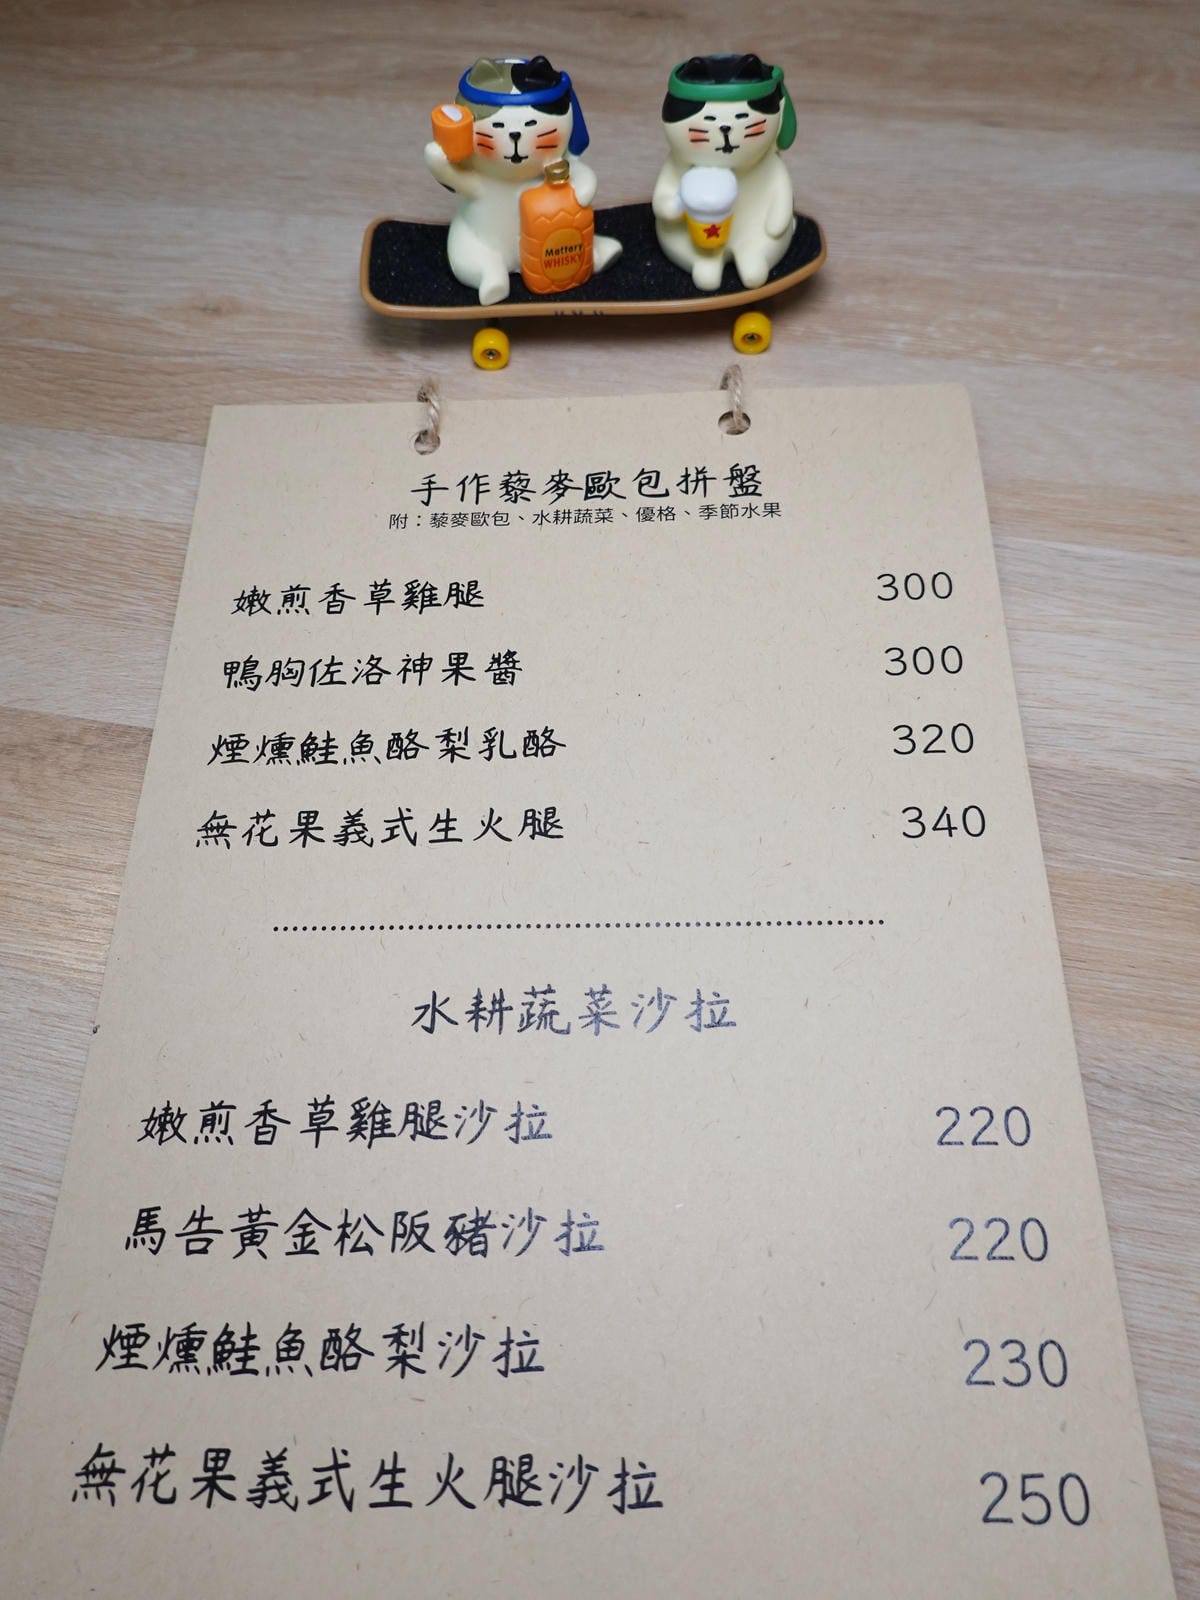 Mattary
WHISKY
手作藜麥歐包拼盤
附：藜麥歐包、水耕蔬菜、優格、季節水果
嫩煎香草雞腿 300
鴨胸佐洛神果醬 300
煙燻鮭魚酪梨乳酪 320
無花果義式生火腿 340
水耕蔬菜沙拉
嫩煎香草雞腿沙拉 220
馬告黃金松阪豬沙拉 220
煙燻鮭魚酪梨沙拉 230
無花果義式生火腿沙拉 250